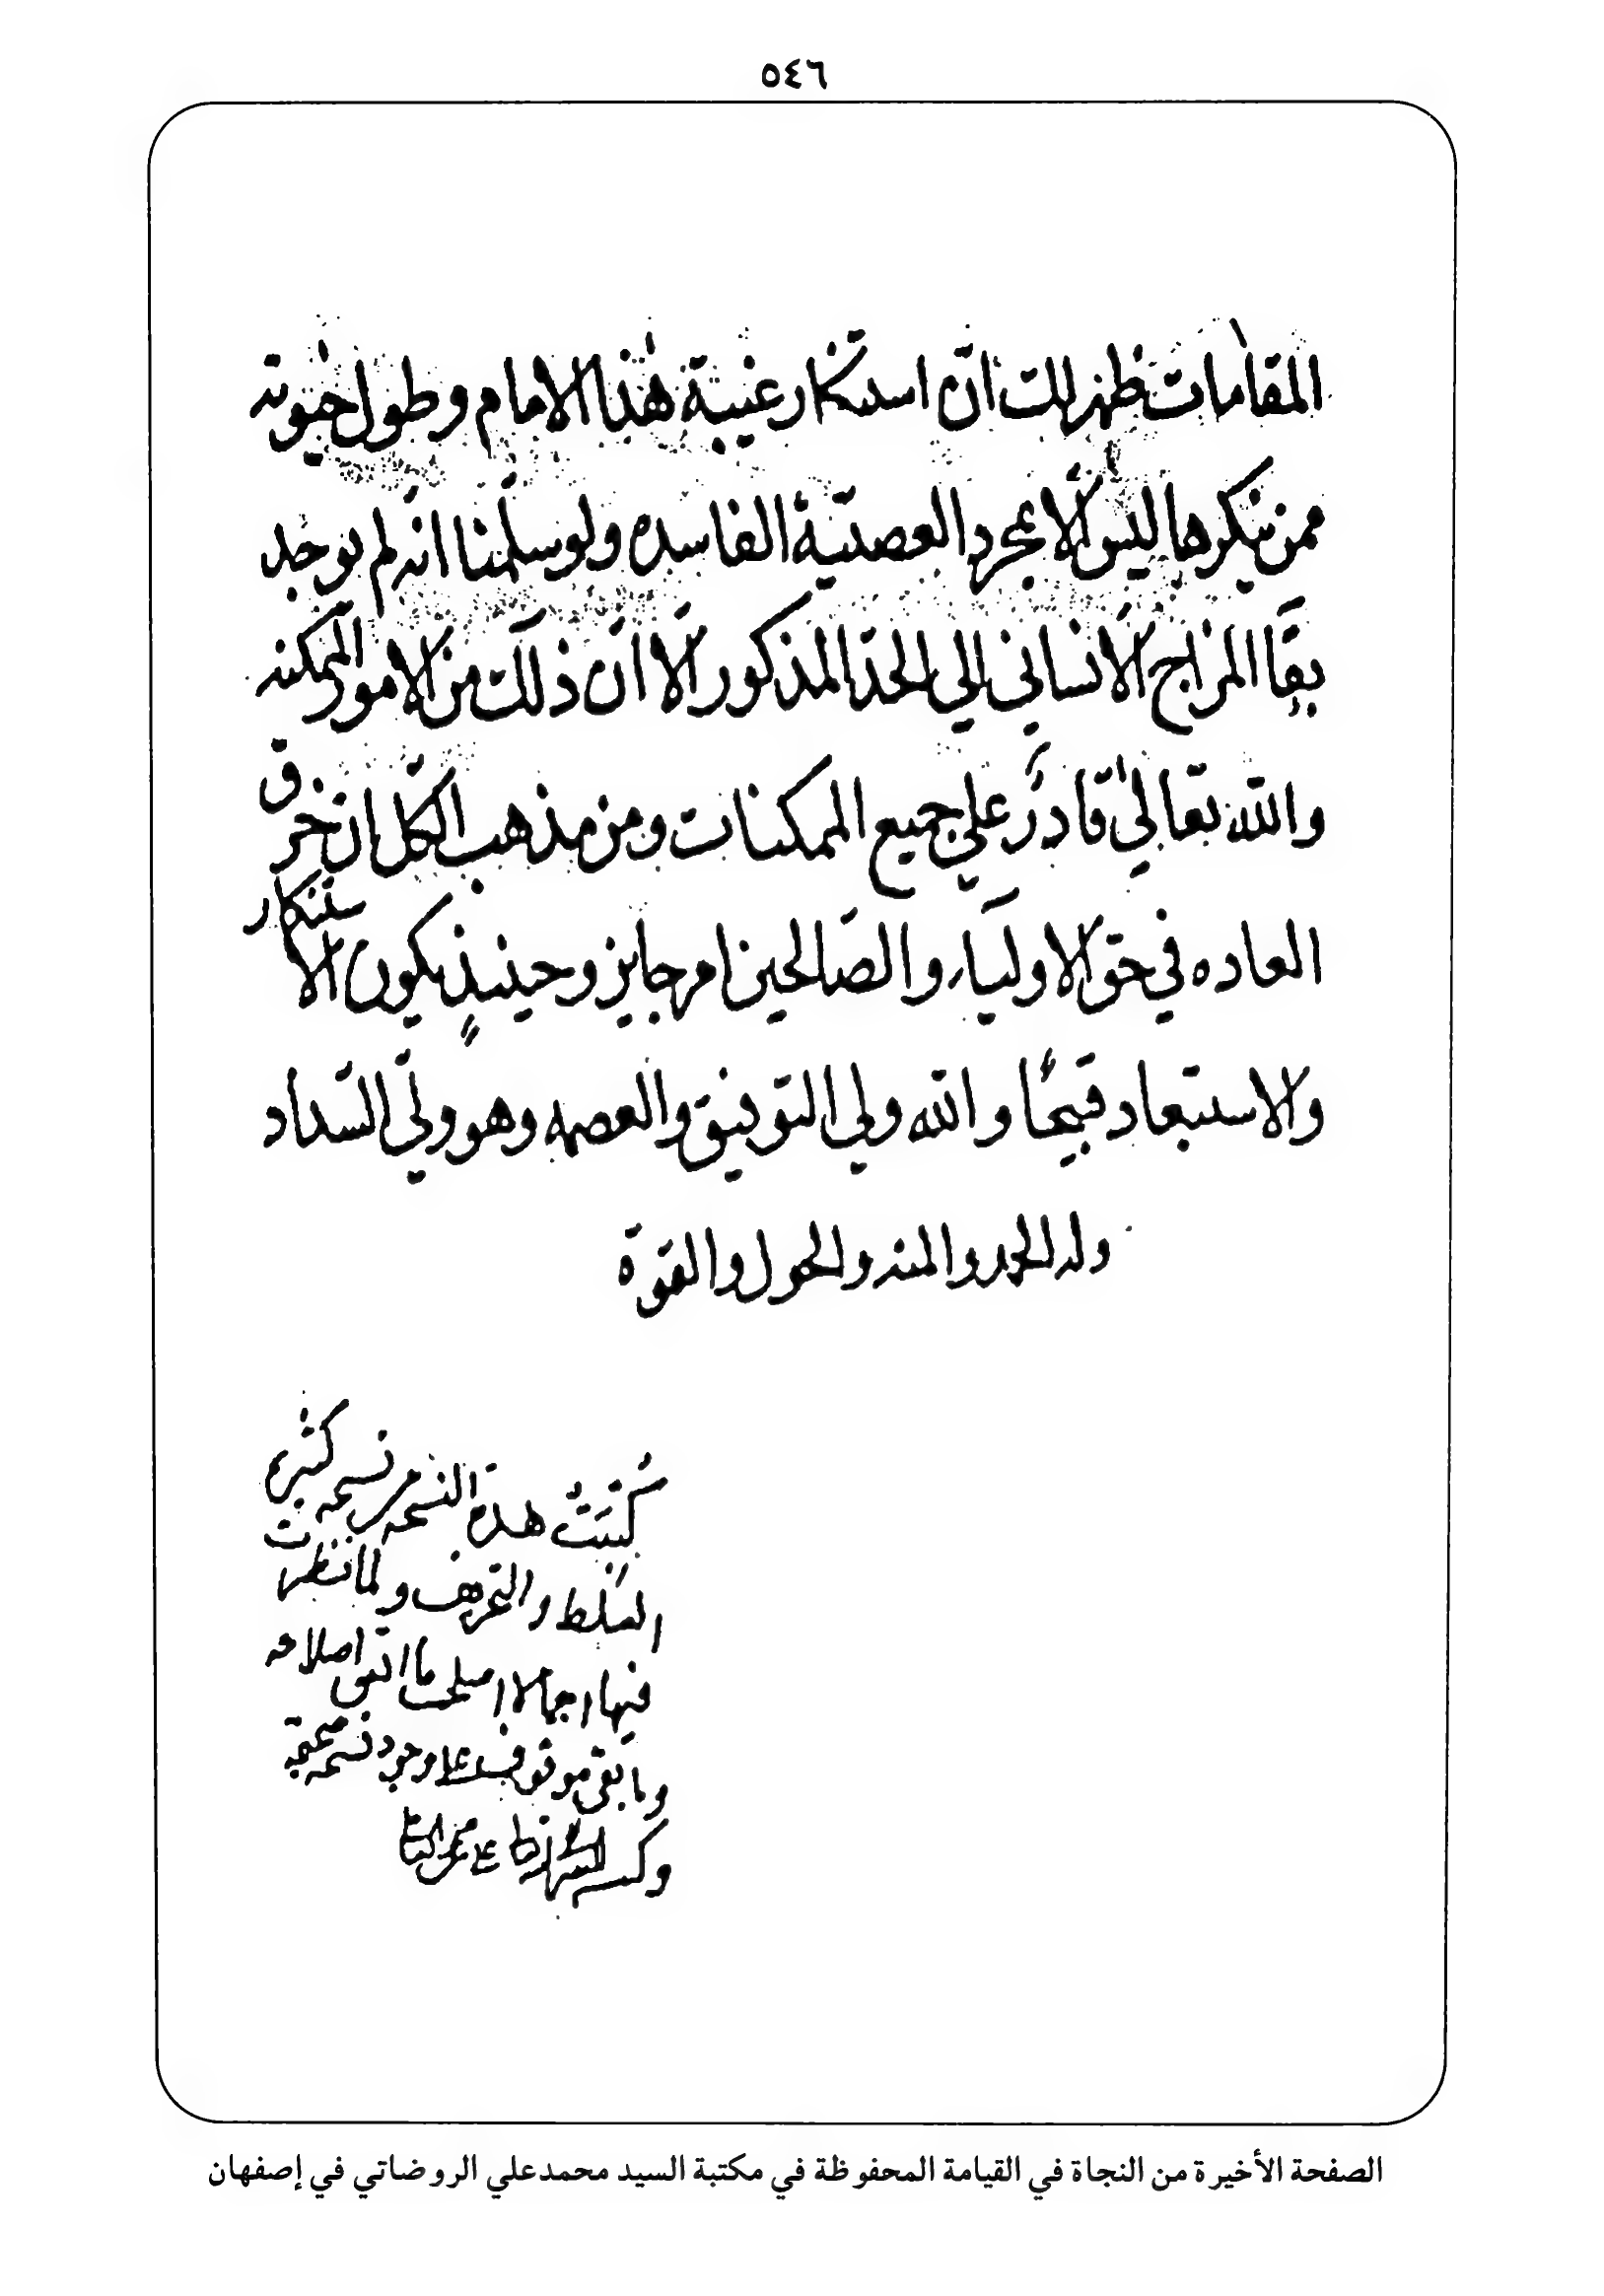 ٥٤٦
المقامات ظهر لك انّ استنكار غيبة هذا الامام وطول حيوته
ممن ينكرها ليس الّا بمجرد العصبيّة الفاسده ولو سلّمنا انه لم يوجد
بقا المزاج الانساني الي الحدّ المذكور الّا انّ ذلك من الامور الممكنه
والله تعالىٰ قادرٌ علي جميع الممكنات ومن مذهب الكلّ ان خرق
العاده في حق الاولياء والصّالحين امر جايز وحينئذٍ يكون الاستنكار
والاستبعاد قبيحًا والله ولي التوفيق والعصمه وهو وليّ السّداد
وله الحمد والمنه والحول والقوّة
كُتِبَتْ هذه النسخه من نسخه كثيرة
الغلط والتحريف ولما نظرت
فيها اجمالا اصلحت ما اتفق اصلاحه
وما بقي موقوف على وجود نسخه صحيحة
وكتب
الصفحة الأخيرة من النجاة في القيامة المحفوظة في مكتبة السيد محمدعلي الروضاتي في إصفهان